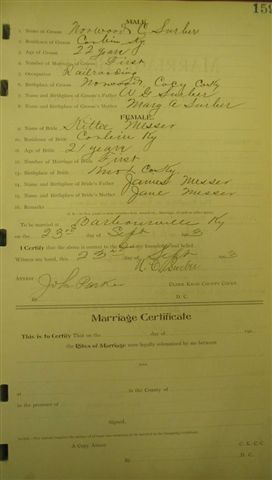 159
MALE.
1. Name of Groom Norwood G Surber
2. Residence of Groom Corbin Ky
3. Age of Groom 22 years
4. Number of Marriage of Groom First
5. Occupation Railroading
6. Birthplace of Groom
7. Name and Birthplace of Groom's Father W D Surber
8. Name and Birthplace of Groom's Mother Marg A Surber
FEMALE.
9. Name of Bride Kittie Messer
10. Residence of Bride Corbin Ky
11. Age of Bride 21 years
12. Number of Marriage of Bride First
13. Birthplace of Bride Knox Co Ky.
14. Name and Birthplace of Bride's Father James Messer
15. Name and Birthplace of Bride's Mother Jane Messer
16. Remarks
To be married at Barbourville Ky
on the 23rd day of Sept
I Certify that the above is correct to the best of my knowledge and belief.
Witness my hand, this 23 day of Sept
Surber
Attest:
John Parker
CLERK KNOX COUNTY COURT.
By D. C.
Marriage Certificate
This is to Certify That on the day of
the Rites of Marriage were legally solemnized by me between
and
at in the County of
in the presence of
Signed,
A Copy Attest: C. K. C. C.
By D. C.